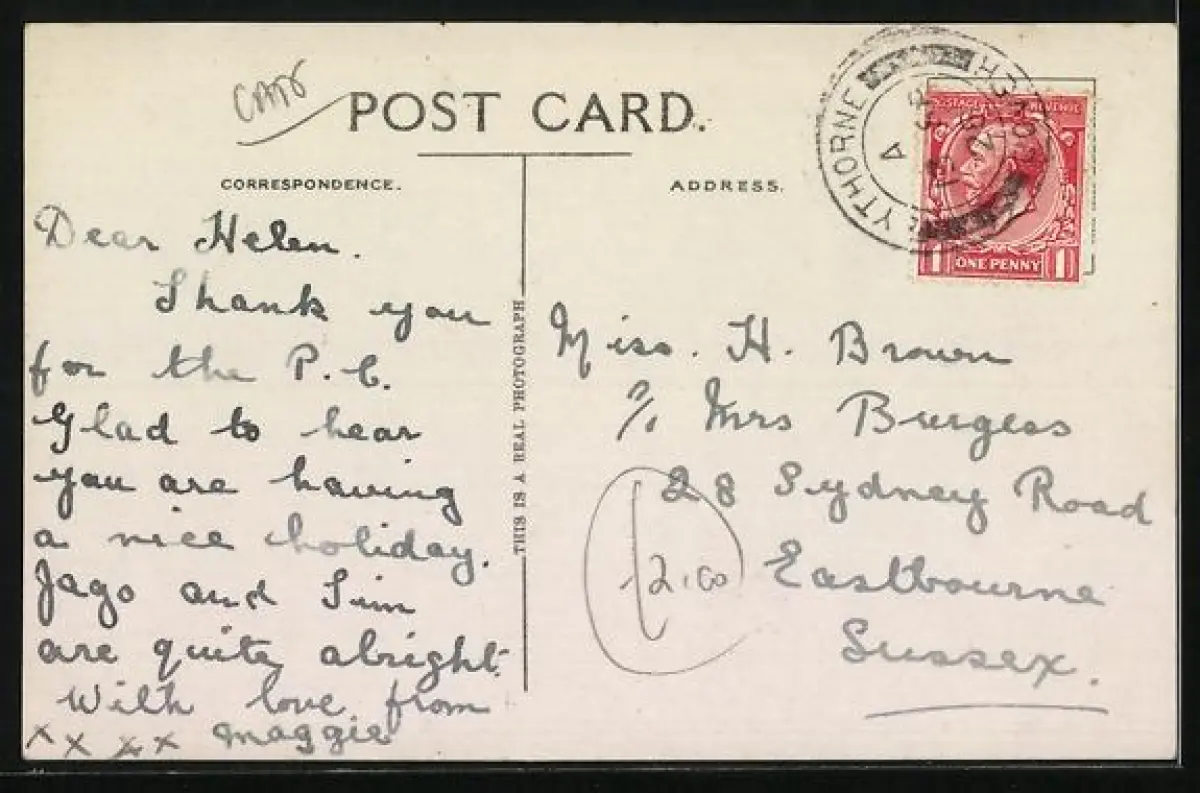 POST CARD.
CORRESPONDENCE.
ADDRESS.
Dear Helen.
Thank you
for the P.C.
Glad to hear
you are having
a nice holiday.
Jago and Tim
are quite alright.
With love from
xx xx Maggie
THIS IS A REAL PHOTOGRAPH
EYTHORNE
A
POSTAGE REVENUE
1 ONE PENNY 1
Miss. H. Brown
c/o Mrs Burgess
28 Sydney Road
Eastbourne
Sussex.